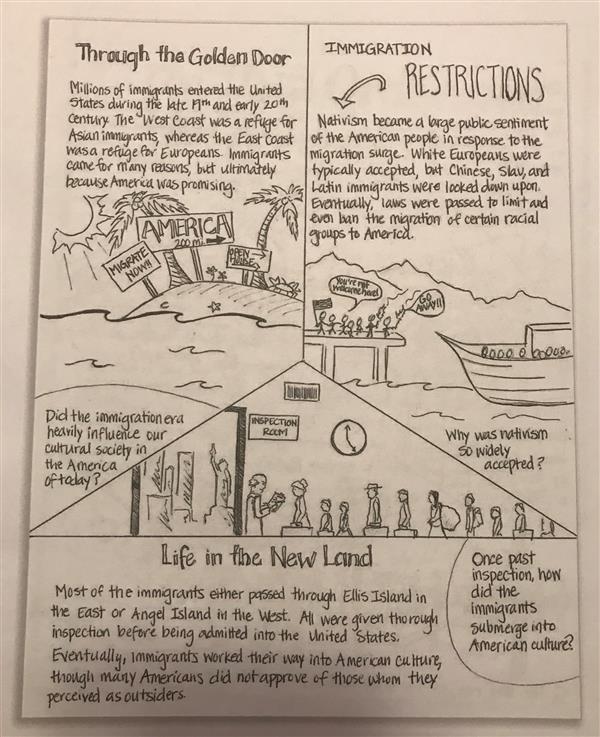 Through the Golden Door
Millions of immigrants entered the United
States during the late 19th and early 20th
Century. The West Coast was a refuge for
Asian immigrants, whereas the East Coast
was a refuge for Europeans. Immigrants
came for many reasons, but ultimately
because America was promising.
AMERICA
200 mi.
MIGRATE
NOW!!
OPEN
IMMIGRATION
RESTRICTIONS
Nativism became a large public sentiment
of the American people in response to the
migration surge. White Europeans were
typically accepted, but Chinese, Slav, and
Latin immigrants were looked down upon.
Eventually, laws were passed to limit and
even ban the migration of certain racial
groups to America.
You're not
welcome here!
GO
AWAY!!
Did the immigration era
heavily influence our
cultural society in
the America
of today?
INSPECTION
ROOM
Why was nativism
so widely
accepted?
Life in the New Land
Most of the immigrants either passed through Ellis Island in
the East or Angel Island in the West. All were given thorough
inspection before being admitted into the United States.
Eventually, immigrants worked their way into American culture,
though many Americans did not approve of those whom they
perceived as outsiders.
Once past
inspection, how
did the
immigrants
submerge into
American culture?